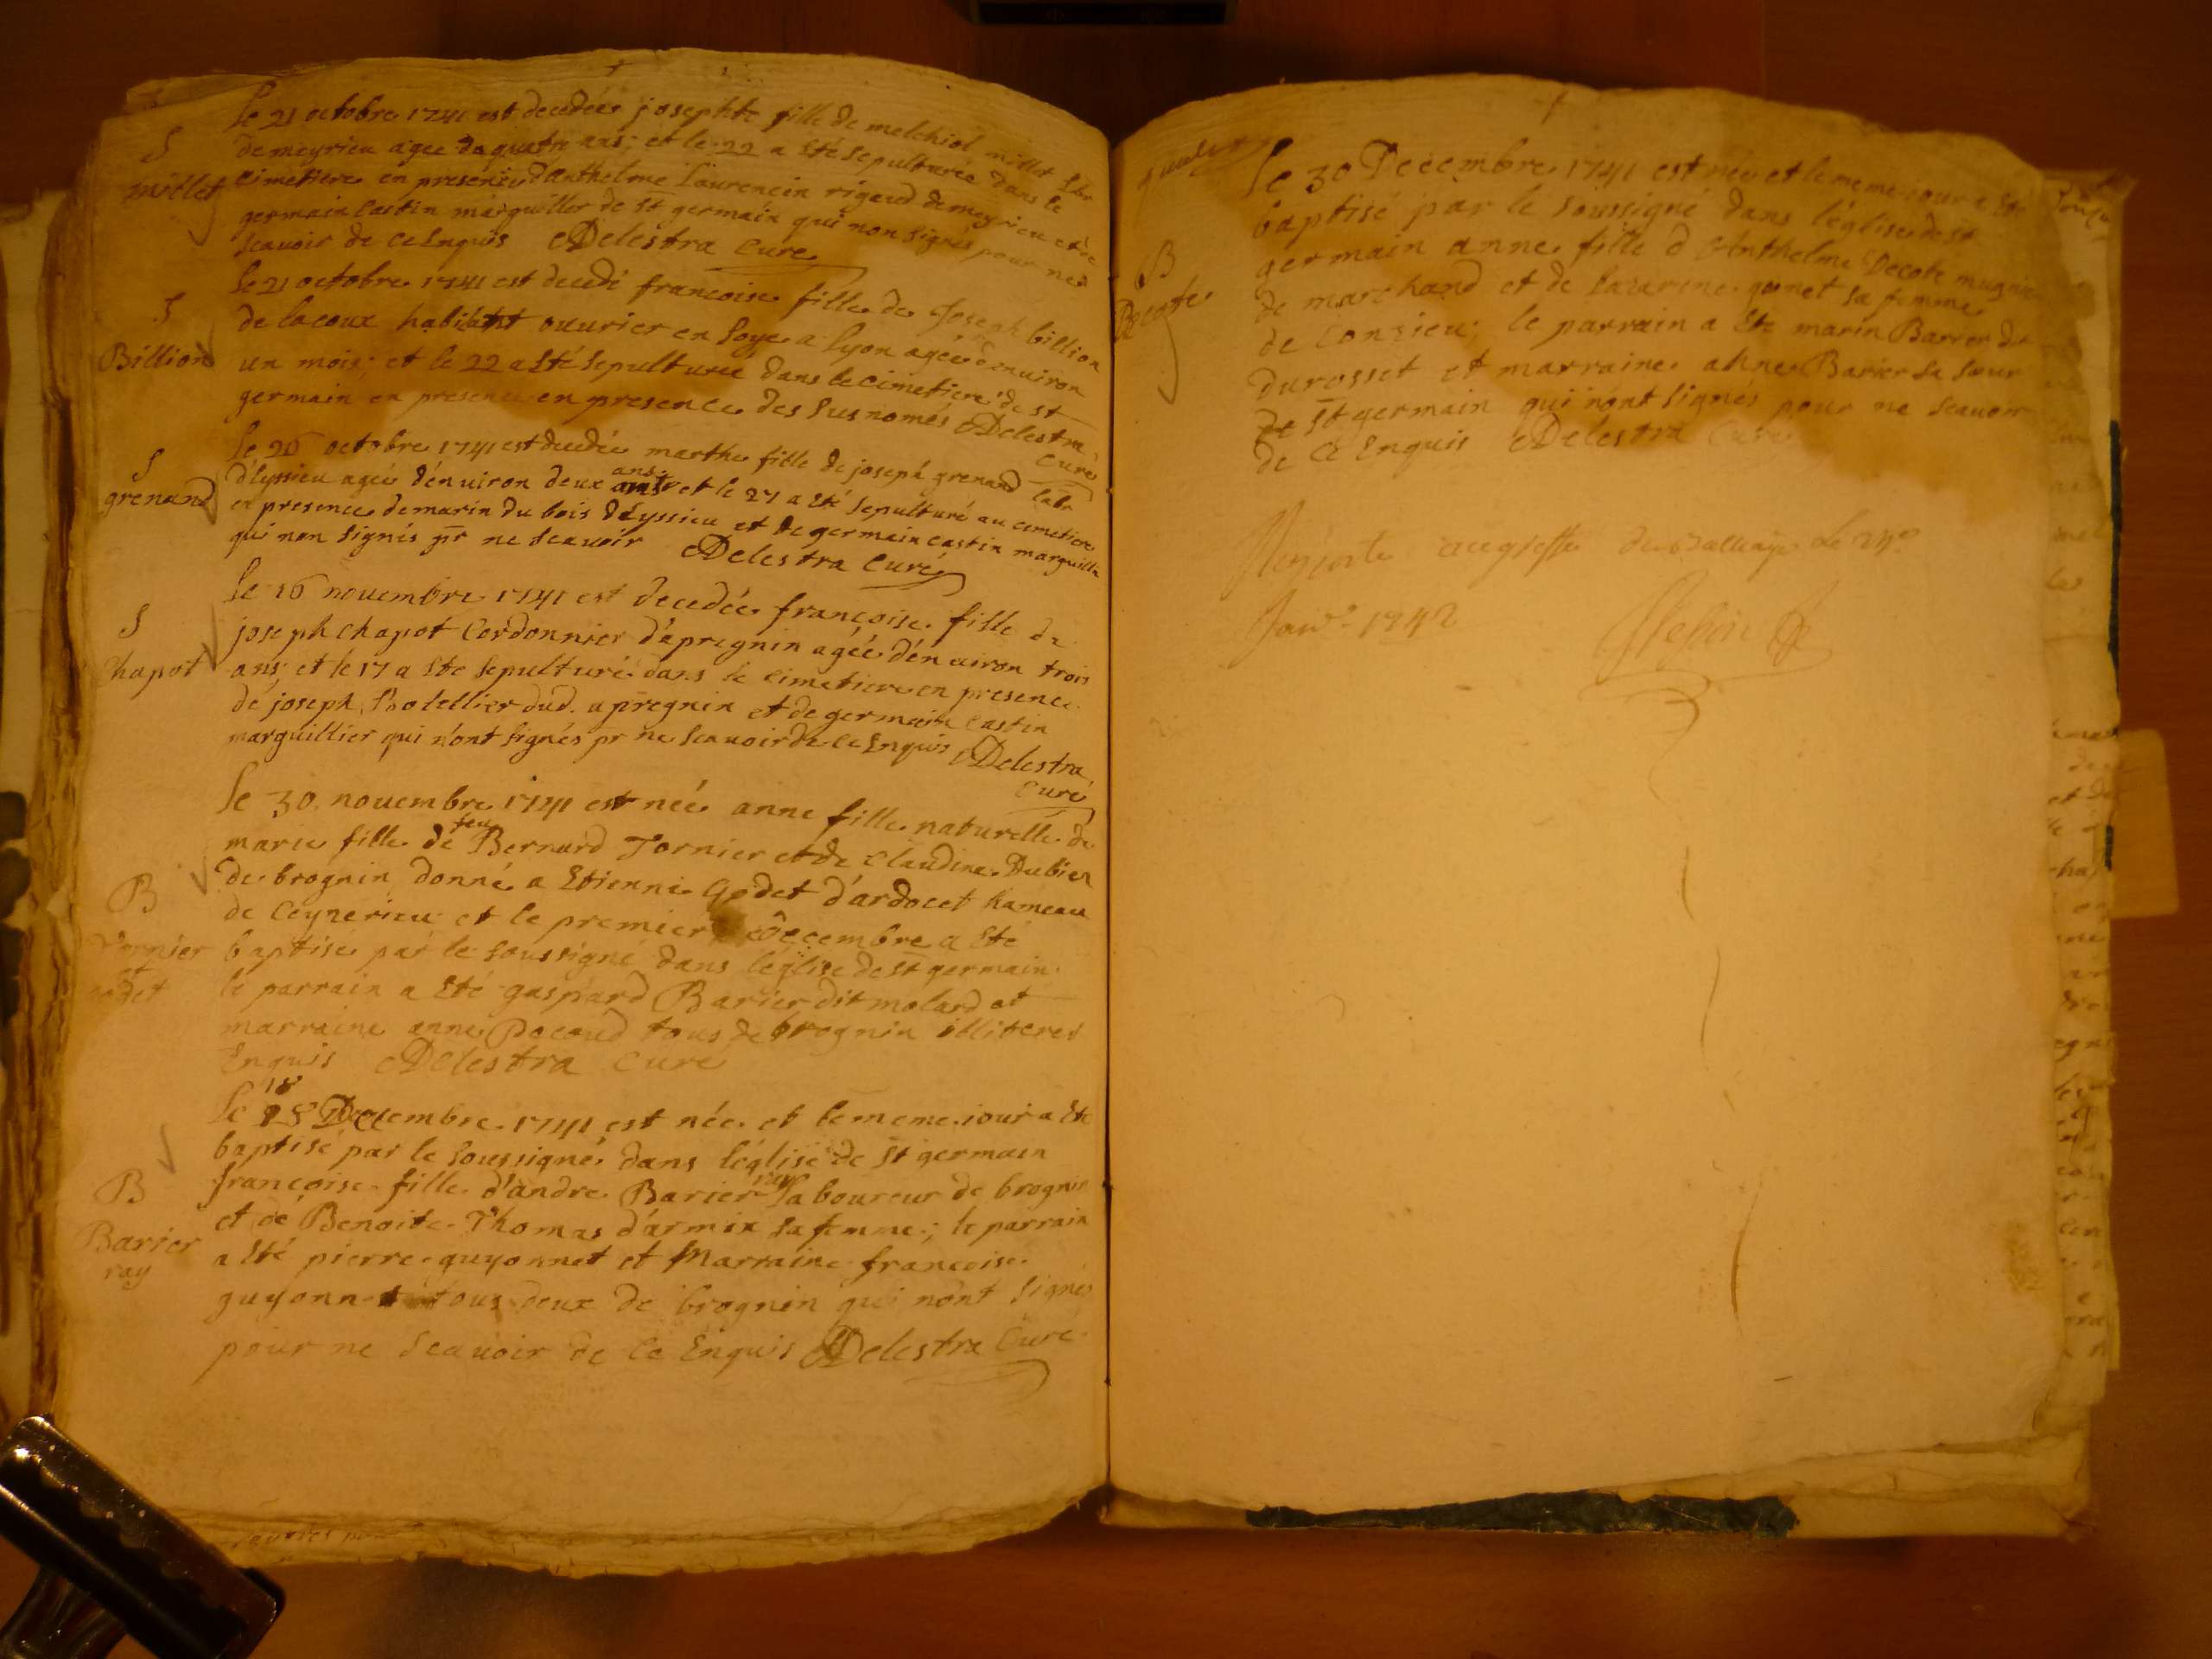 le 21 octobre 1741 est decedée josephte fille de melchiol millet lbr
S
de meyrieu agee de quatre ans; et le 22 a été sepulturée dans le
millet
cimetiere en presence danthelme Laurencin rigaud de meyrieu et de
germain castin marguiller de st germain qui non signés pour ne
scauoir de ce Enquis Delestra Cure
le 21 octobre 1741 est decedé francoise fille de Joseph billion
S
de lacoux habitant ouurier en soye a lyon agée denuiron
Billion
un mois; et le 22 a Eté sepulturée dans le cimetiere de st
germain en presence en presence des susnomés Delestra
Curé
le 26 octobre 1741 est decedée marthe fille de joseph grenand labr
S
d'Eyssieu agée d'enuiron deux ans et le 27 a Eté sepulturé au cimetiere
grenand
en presence de marin du bois d'Eyssieu et de germain castin marguillier
qui non signés pr ne scauoir Delestra Curé
le 16 nouembre 1741 est decedée françoise fille de
S
joseph chapot Cordonnier d'apregnin agée d'enuiron trois
Chapot
ans; et le 17 a Ete sepulturé dans le cimetiere en presence
de joseph Botellier dud. apregnin et de germain castin
marguillier qui n'ont signés pr ne scauoir de ce Enquis Delestra
Curé
le 30 nouembre 1741 est née anne fille naturelle de
marie fille de feu Bernard Tornier et de claudine Dubier
B
de brognin donné a Etienne Godet d'ardocet hameau
de Ceyzerieu et le premier Decembre a Eté
baptisé par le soussigné dans léglise de st germain.
le parrain a Eté gaspard Barier dit molard et
marraine anne Pocaud tous de brognin illiteres
Enquis Delestra Cure
le 18 Decembre 1741 est née et le meme iour a Eté
baptisé par le soussigné dans l'église de st germain
B
francoise fille d'andre Barier ray laboureur de brognin
Barier
ray
et de Benoite Thomas d'armix sa femme; le parrain
a Eté pierre guyonnet et Marraine francoise
guyonnet tous deux de brognin qui n'ont signés
pour ne scauoir de ce Enquis Delestra Curé
le 30 Decembre 1741 est née et le meme iour a Eté
baptisé par le soussigné dans l'église de st
B
germain anne fille d'Anthelme Decote mugnier
Decote
de marchand et de Lazarine gonet sa femme
de Conzieu; le parrain a Ete marin Barier de
durosset et marraine anne Barier sa sœur
de St germain qui n'ont signés pour ne scauoir
de Ce Enquis Delestra Curé
au greffe du Balliage Le 27e
Janv. 1742